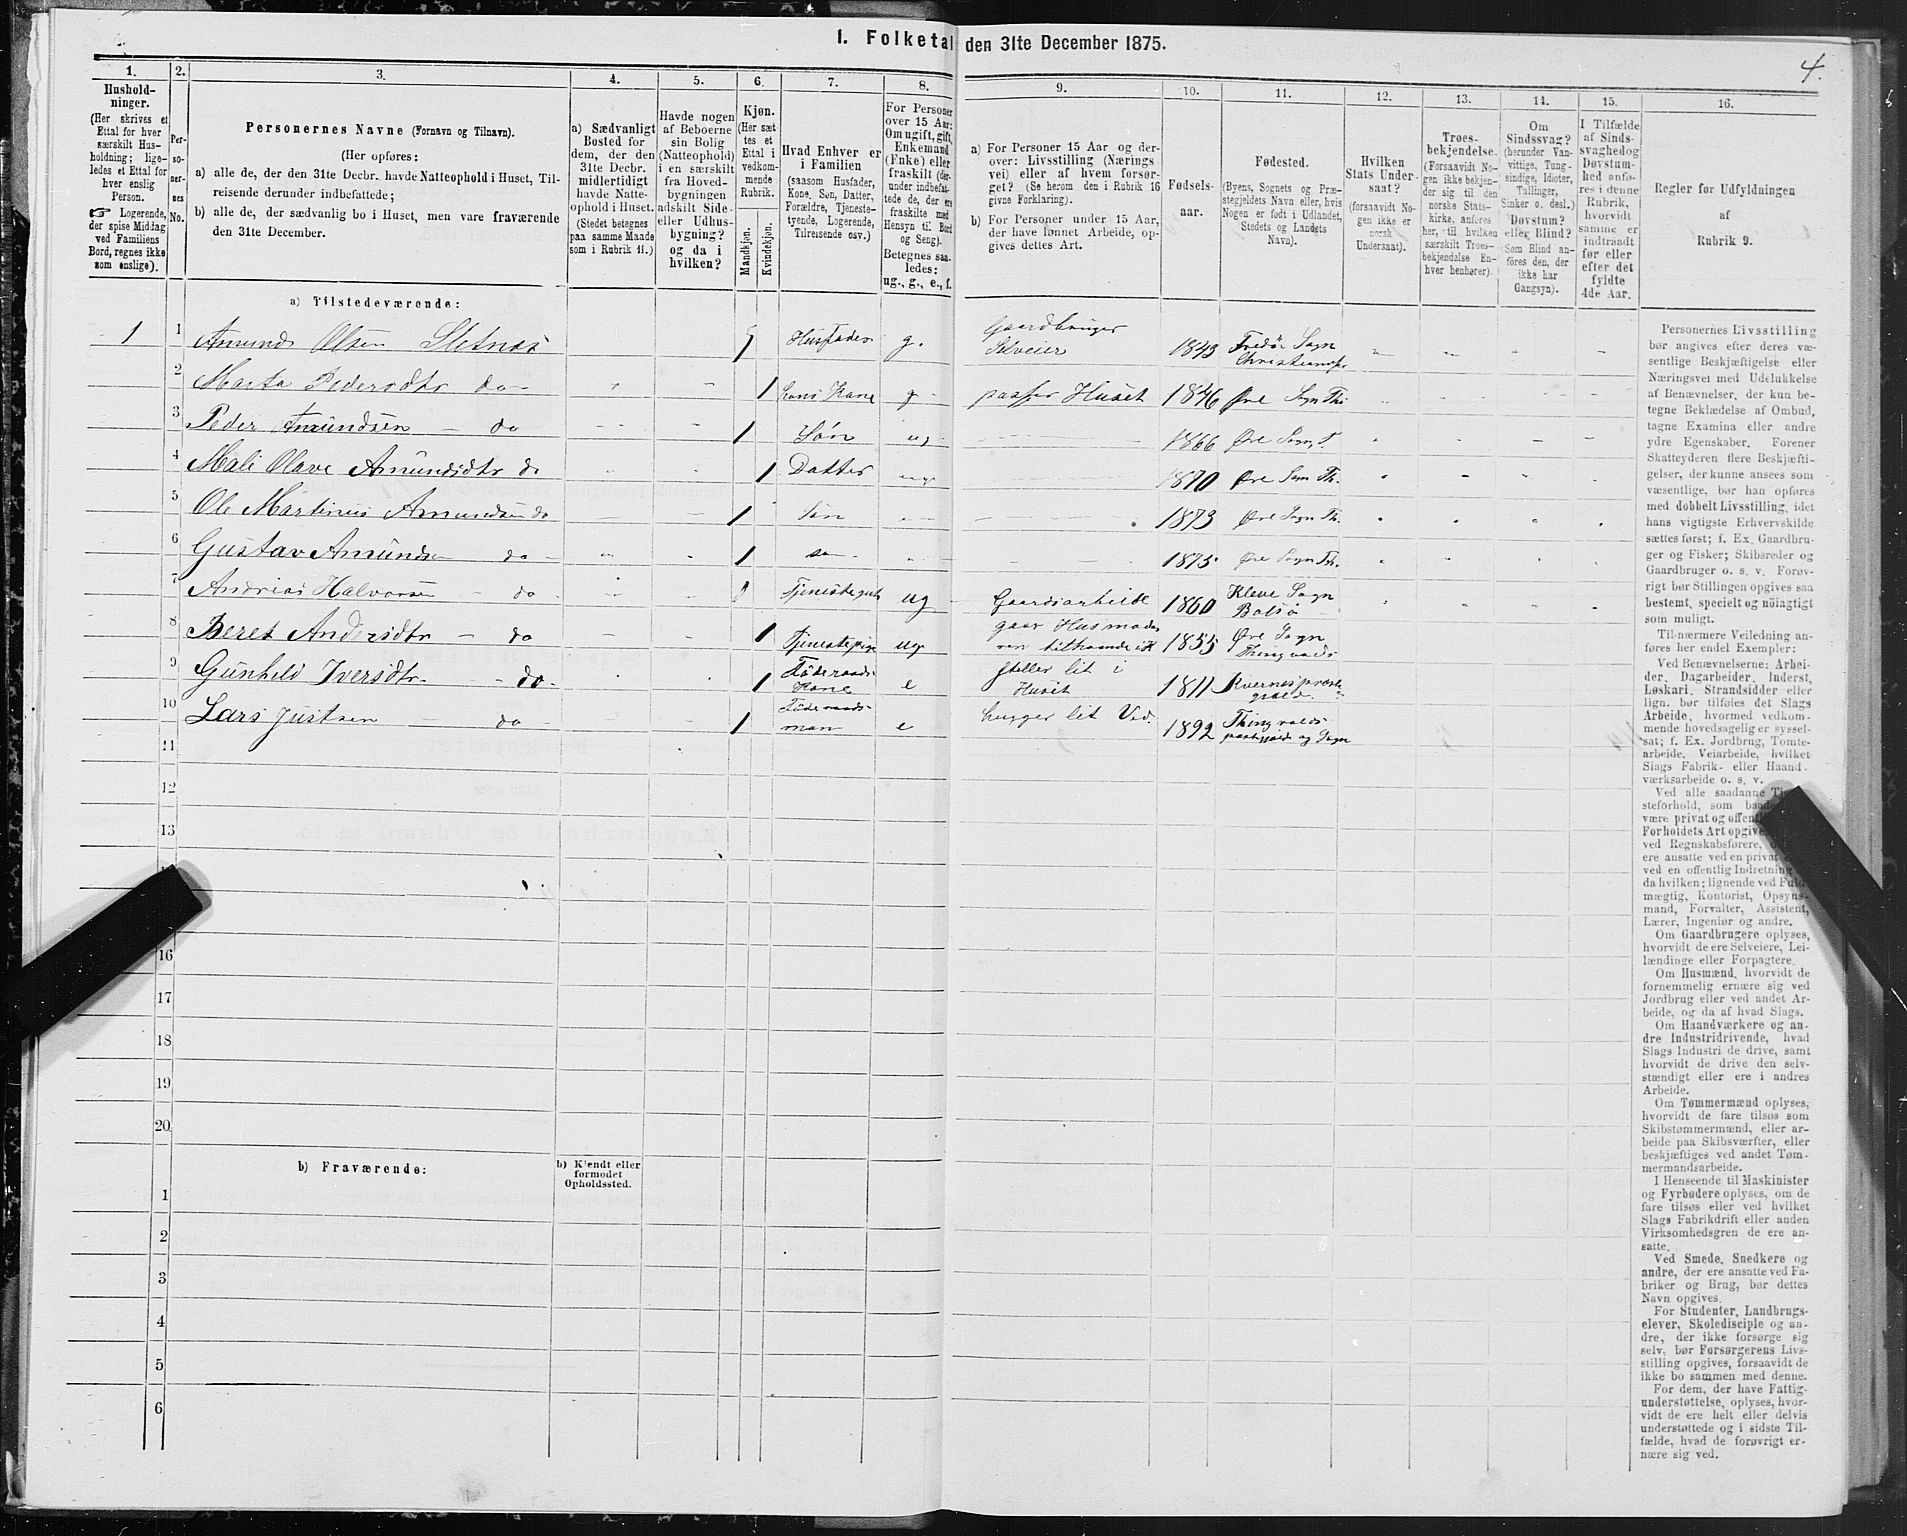 1. Folketal den 31te December 1875.
4.
1.
2.
3.
4.
5.
6.
7.
8.
9.
10.
11.
12.
13.
14.
15.
16.
Hushold-
ninger.
(Her skrives et
Ettal for hver
særskilt Hus-
holdning; lige-
ledes et Ettal for
hver enslig
Person.
☞ Logerende,
der spise Middag
ved Familiens
Bord, regnes ikke
som enslige).
Per-
so-
ner-
nes
No.
Personernes Navne (Fornavn og Tilnavn).
(Her opføres:
a) alle de, der den 31te Decbr. havde Natteophold i Huset, Til-
reisende derunder indbefattede;
b) alle de, der sædvanlig bo i Huset, men vare fraværende
den 31te December.
a) Sædvanligt
Bosted for
dem, der den
31te Decbr.
midlertidigt
havde Natte-
ophold i Huset.
(Stedet betegnes
paa samme Maade
som i Rubrik 11.)
Havde nogen
af Beboerne
sin Bolig
(Natteophold)
i en særskilt
fra Hoved-
bygningen
adskilt Side-
eller Udhus-
bygning?
og da i
hvilken?
Kjøn.
(Her sæt
tes et
Ettal i
vedkom-
mende
Rubrik.
Mandkjøn.
Kvindekjøn.
Hvad Enhver er
i Familien
(saasom Husfader,
Kone, Søn, Datter,
Forældre, Tjeneste-
tyende, Logerende,
Tilreisende osv.)
For Personer
over 15 Aar:
Om ugift, gift,
Enkemand
(Enke) eller
fraskilt (der-
under indbefat-
tede de, der ere
fraskilte med
Hensyn til Bord
og Seng).
Betegnes saa-
ledes:
ug., g., e., f.
a) For Personer 15 Aar og der-
over: Livsstilling (Nærings
vei) eller af hvem forsør-
get? (Se herom den i Rubrik 16
givne Forklaring).
b) For Personer under 15 Aar,
der have lønnet Arbeide, op-
gives dettes Art.
Fødsels-
aar.
Fødested.
(Byens, Sognets og Præ-
stegjeldets Navn eller, hvis
Nogen er født i Udlandet,
Stedets og Landets
Navn).
Hvilken
Stats Under-
saat?
(forsaavidt No-
gen ikke er
norsk
Undersaat).
Troes-
bekjendelse.
(Forsaavidt No-
gen ikke bekjen-
der sig til den
norske Stats-
kirke, anføres
her, til hvilken
særskilt Troes-
bekjendelse En-
hver henhører).
Om
Sindssvag?
(herunder Van-
vittige, Tung-
sindige, Idioter,
Tullinger,
Sinker o. desl.)
Døvstum?
eller Blind?
(Som Blind an-
føres den, der
ikke har
Gangsyn).
I Tilfælde
af Sinds-
svaghed og
Døvstum-
hed anfø-
res i denne
Rubrik,
hvorvidt
samme er
indtraadt
før eller
efter det
fyldte
4de Aar.
Regler for Udfyldningen
af
Rubrik 9.
a) Tilstedeværende:
1 1 Amund Olsen Sletnes Husfader g. Gaardbruger Selveier 1843 Fredø Sogn
2 Marta Pedersdtr do 1 hans Kone g passer Huset 1846 Øre Sogn Th.
3 Peder Amundsen do 1 Søn ug 1866 Øre Sogn T.
4 Mali Olave Amundsdtr do 1 Datter 1870 Øre Sogn Th.
5 Ole Martinus Amundsen do 1 Søn 1873 Øre Sogn Th.
6 Gustav Amunds do 1 1875 Øre Sogn Th.
7 Andrias Halvorsen do Tjenestegut ug Gaardsarbeide 1860 Kleve Sogn Bolsø
8 Beret Andersdtr do 1 Tjenestepige ug gaar Husmode ren tilhaande i H 1855 Øre Sogn Thingvolds
9 Gunhild Iversdtr do 1 Føderaads Kone e steller lit i Huset 1811 Kvernes præste gjæld
10 Lars Justsen do 1 Føderaads man e hugger lit Ved. 1892 Thingvolds og Sogn
11
12
13
16
17
18
19
20
b) Fraværende:
b) Kjendt eller
formodet
Opholdssted.
1
2
3
4
5
6
Personernes Livsstilling
bør angives efter deres væ-
sentlige Beskjæftigelse eller
Næringsvei med Udelukkelse
af Benævnelser, der kun be-
tegne Beklædelse af Ombud,
tagne Examina eller andre
ydre Egenskaber. Forener
Skatteyderen flere Beskjæfti-
gelser, der kunne ansees som
væsentlige, bør han opføres
med dobbelt Livsstilling, idet
hans vigtigste Erhvervskilde
sættes først; f. Ex. Gaardbru-
ger og Fisker; Skibsreder og
Gaardbruger o. s. v. Forøv-
rigt bør Stillingen opgives saa
bestemt, specielt og nøiagtigt
som muligt.
Til nærmere Veiledning an-
føres her endel Exempler:
Ved Benævnelserne: Arbei-
der, Dagarbeider, Inderst,
Løskari, Strandsidder eller
lign. bør tilføies det Slags
Arbeide, hvormed vedkom-
mende hovedsagelig er syssel-
sat; f. Ex. Jordbrug, Tomte-
arbeide, Veiarbeide, hvilket
Slags Fabrik- eller Haand-
værksarbeide o. s. v.
Ved alle saadanne
steforhold, som
være privat og
Forholdets Art
ved Regnskabsførere,
ere ansatte ved en privat
ved en offentlig Indretning
da hvilken; lignende ved
mægtig, Kontorist, Opsyns-
mand, Forvalter, Assistent,
Lærer, Ingeniør og andre.
Om Gaardbrugere oplyses,
hvorvidt de ere Selveiere, Lei-
lændinge eller Forpagtere.
Om Husmænd, hvorvidt de
fornemmelig ernære sig ved
Jordbrug eller ved andet Ar-
beide, og da af hvad Slags.
Om Haandværkere og an-
dre Industridrivende, hvad
Slags Industri de drive, samt
hvorvidt de drive den selv-
stændigt eller ere i andres
Arbeide.
Om Tømmermænd oplyses,
hvorvidt de fare tilsøs som
Skibstømmermænd, eller ar-
beide paa Skibsværfter, eller
beskjæftiges ved andet Tøm-
mermandsarbeide.
I Henseende til Maskinister
og Fyrbødere oplyses, om de
fare tilsøs eller ved hvilket
Slags Fabrikdrift eller anden
Virksomhedsgren de ere an-
satte.
Ved Smede, Snedkere og
andre, der ere ansatte ved Fa-
briker og Brug, bør dettes
Navn opgives.
For Studenter, Landbrugs-
elever, Skoledisciple og an-
dre, der ikke forsørge sig
selv, bør Forsørgerens Livs-
stilling opgives, forsaavidt de
ikke bo sammen med denne.
For dem, der have Fattig-
understøttelse, oplyses, hvor-
vidt de ere helt eller delvis
understøttede og i sidste Til-
fælde, hvad de forøvrigt er-
nære sig ved.